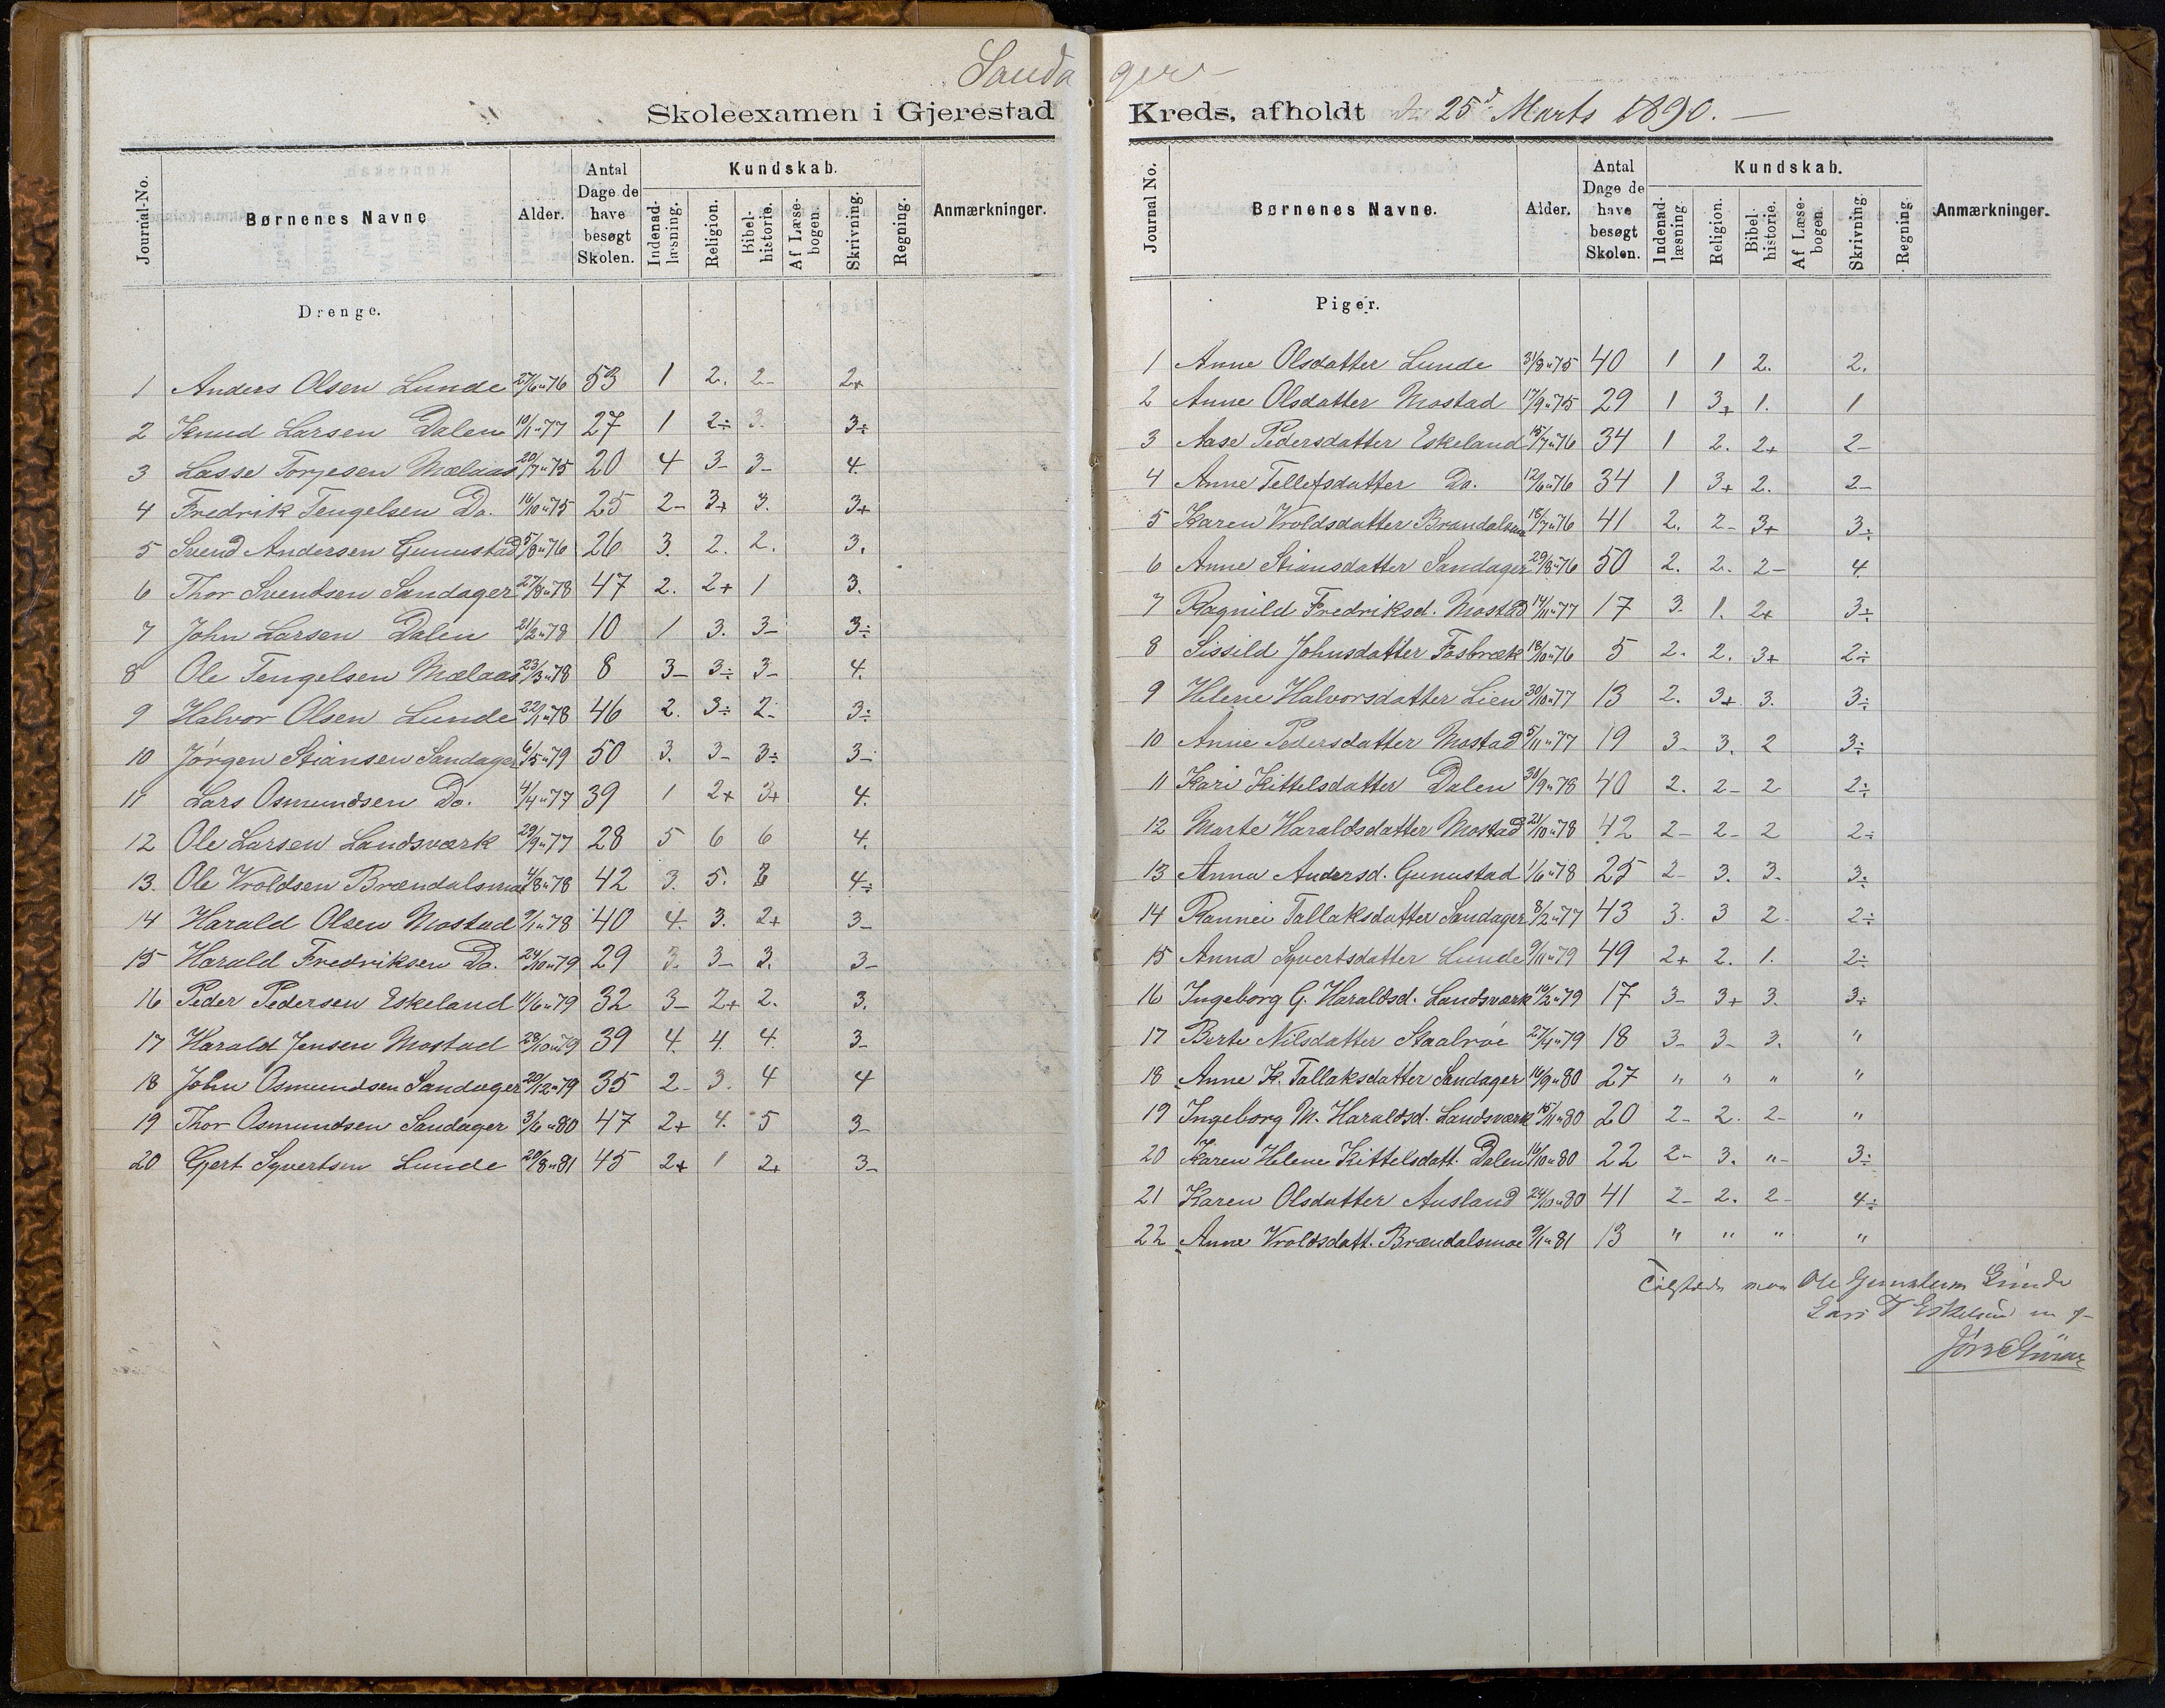 Sandager
Skoleexamen i Gjerestad Kreds, afholdt d. 25d Marts 1890. —
Journal-No. Børnenes Navne Alder. Antal Dage de have besøgt Skolen. Kundskab. Indenad-læsning. Religion. Bibel-historie. Af Læse-bogen. Skrivning. Regning. Anmærkninger.
Drenge.
1 Anders Olsen Lunde 27/6 " 76 53 1 2. 2- 2+
2 Knud Larsen Dalen 10/1 " 77 27 1 2÷ 3. 3÷
3 Lasse Torjesen Mælaas 20/7 " 75 20 4 3- 3- 4.
4 Fredrik Tengelsen Do. 16/10 " 75 25 2- 3+ 3. 3+
5 Svend Andersen Gunnustad 5/8 " 76 26 3. 2. 2. 3.
6 Thor Svendsen Sandager 27/8 " 78 47 2. 2+ 1 3.
7 John Larsen Dalen 21/2 " 78 10 1 3. 3- 3÷
8 Ole Tengelsen Mælaas 23/3 " 78 8 3- 3÷ 3- 4.
9 Halvor Olsen Lunde 22/1 " 78 46 2. 3÷ 2- 3÷
10 Jørgen Stiansen Sandager 6/5 " 79 50 3. 3- 3÷ 3-
11 Lars Osmundsen Do. 4/4 " 77 39 1 2+ 3+ 4.
12 Ole Larsen Landsværk 29/9 " 77 28 5 6 6 4.
13. Ole Vroldsen Brændalsmoe 4/8 " 78 42 3. 5. 3 4÷
14 Harald Olsen Mostad 9/1 " 78 40 4. 3. 2+ 3-
15 Harald Fredriksen Do. 24/10 " 79 29 3. 3- 3. 3-
16 Peder Pedersen Eskeland 11/6 " 79 32 3- 2+ 2. 3.
17 Harald Jensen Mostad 28/10 " 79 39 4. 4. 4. 3-
18 John Osmundsen Sandager 20/12 " 79 35 2- 3. 4 4
19 Thor Osmundsen Sandager 3/6 " 80 47 2+ 4. 5 3-
20 Gjert Syvertsen Lunde 20/8 " 81 45 2+ 1 2+ 3-
Journal No. Børnenes Navne. Alder. Antal Dage de have besøgt Skolen. Kundskab. Indenad-læsning. Religion. Bibel-historie. Af Læse-bogen. Skrivning. Regning. Anmærkninger.
Piger.
1 Anne Olsdatter Lunde 31/8 " 75 40 1 1 2. 2.
2 Anne Olsdatter Mostad 17/9 " 75 29 1 3+ 1. 1
3 Aase Pedersdatter Eskeland 15/7 " 76 34 1 2. 2+ 2-
4 Anne Tellefsdatter Do. 12/6 " 76 34 1 3+ 2. 2-
5 Karen Vroldsdatter Brændalsmoe 18/7 " 76 41 2. 2- 3+ 3÷
6 Anne Stiansdatter Sandager 29/8 " 76 50 2. 2. 2- 4.
7 Ragnild Fredriksd. Mostad 14/11 " 77 17 3. 1. 2+ 3÷
8 Sissild Johnsdatter Fosbræk 18/10 " 76 5 2. 2. 3+ 2÷
9 Helene Halvorsdatter Lien 30/10 " 77 13 2. 3+ 3. 3÷
10 Anne Pedersdatter Mostad 5/11 " 77 19 3- 3. 2 3÷
11 Kari Kittelsdatter Dalen 30/9 " 78 40 2. 2- 2 2÷
12 Marte Haraldsdatter Mostad 21/10 " 78 42 2- 2- 2 2÷
13 Anna Andersd. Gunnustad 1/6 " 78 25 2- 3. 3. 3÷
14 Rannei Tallaksdatter Sandager 8/2 " 77 43 3. 3 2- 2÷
15 Anna Syvertsdatter Lunde 9/11 " 79 49 2+ 2. 1. 2÷
16 Ingeborg G. Haraldsd. Landsværk 16/2 " 79 17 3- 3+ 3. 3÷
17 Berte Nilsdatter Staalrøe 27/4 " 79 18 3- 3- 3. "
18 Anne K. Tallaksdatter Sandager 16/9 " 80 27 " " " "
19 Ingeborg M. Haraldsd. Landsværk 15/11 " 80 20 2- 2. 2- "
20 Karen Helene Kittelsdatt. Dalen 16/10 " 80 22 2- 3. "- 3÷
21 Karen Olsdatter Ausland 24/10 " 80 41 2- 2. 2- 4÷
22 Anne Vroldsdatt. Brændalsmoe 9/1 " 81 13 " " " "
Tilstede var Ole Gunnulsen Lunde
Lars T Eskeland m f